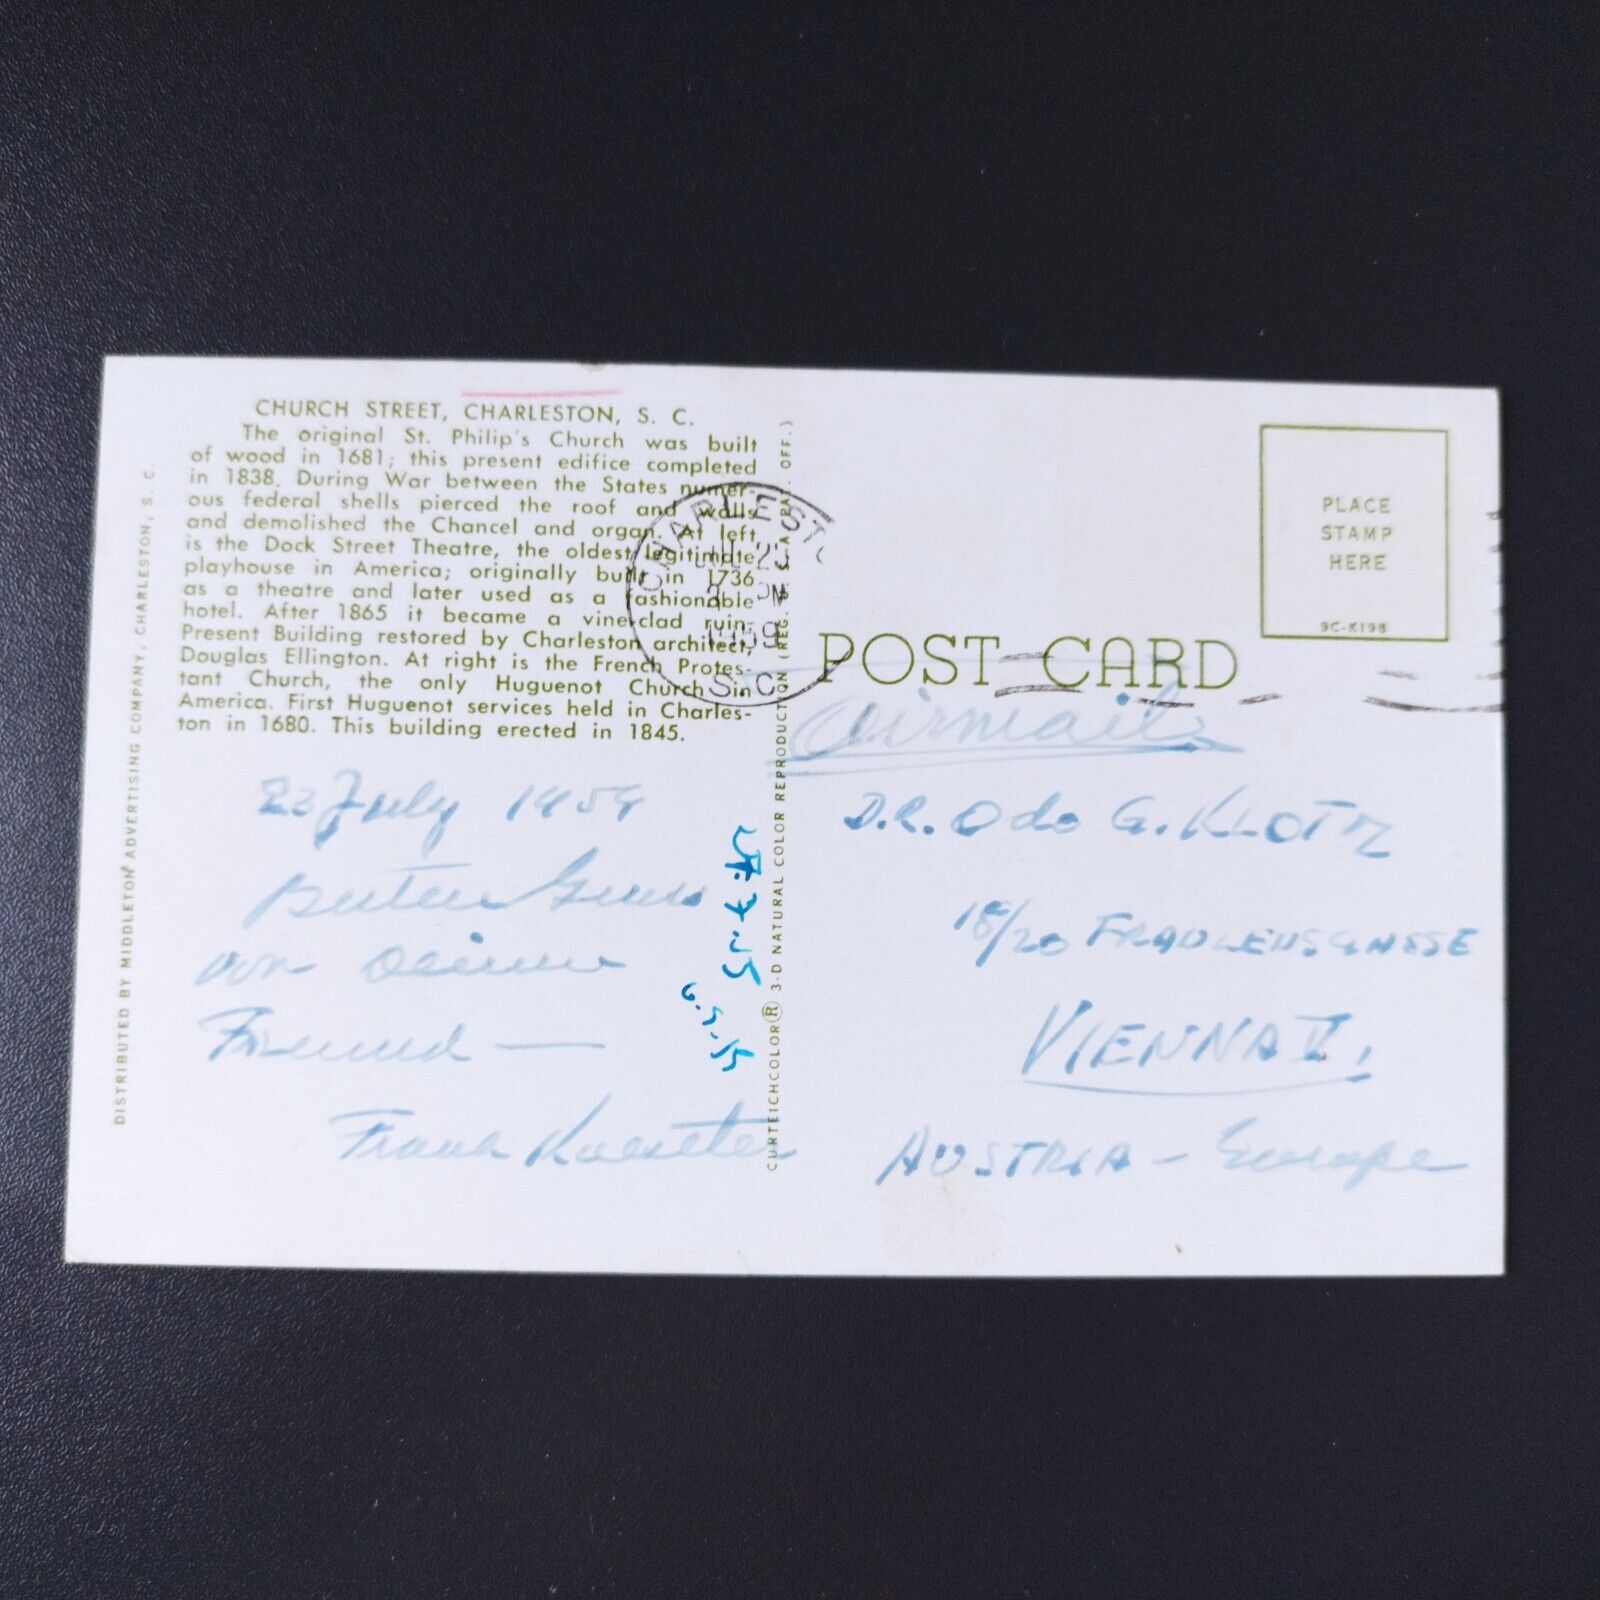 CHURCH STREET, CHARLESTON, S. C.
The original St. Philip's Church was built
of wood in 1681; this present edifice completed
in 1838. During War between the States numer-
ous federal shells pierced the roof and walls
and demolished the Chancel and organ. At left
is the Dock Street Theatre, the oldest legitimate
playhouse in America; originally built in 1736
as a theatre and later used as a fashionable
hotel. After 1865 it became a vine-clad ruin.
Present Building restored by Charleston architect,
Douglas Ellington. At right is the French Protes-
tant Church, the only Huguenot Church in
America. First Huguenot services held in Charles-
ton in 1680. This building erected in 1845.
DISTRIBUTED BY MIDDLETON ADVERTISING COMPANY, CHARLESTON, S. C.
23 July 1959
Gruss
von
Freund —
Frank
CURTEICHCOLOR® 3-D NATURAL COLOR REPRODUCTION (REG. U. S. A. PAT. OFF.)
JUL 23
PM
1959
S.C.
PLACE
STAMP
HERE
9C-K198
POST CARD
Airmail
D.R. Odo G. KLOTZ
18/20
VIENNA V.
AUSTRIA - Europe